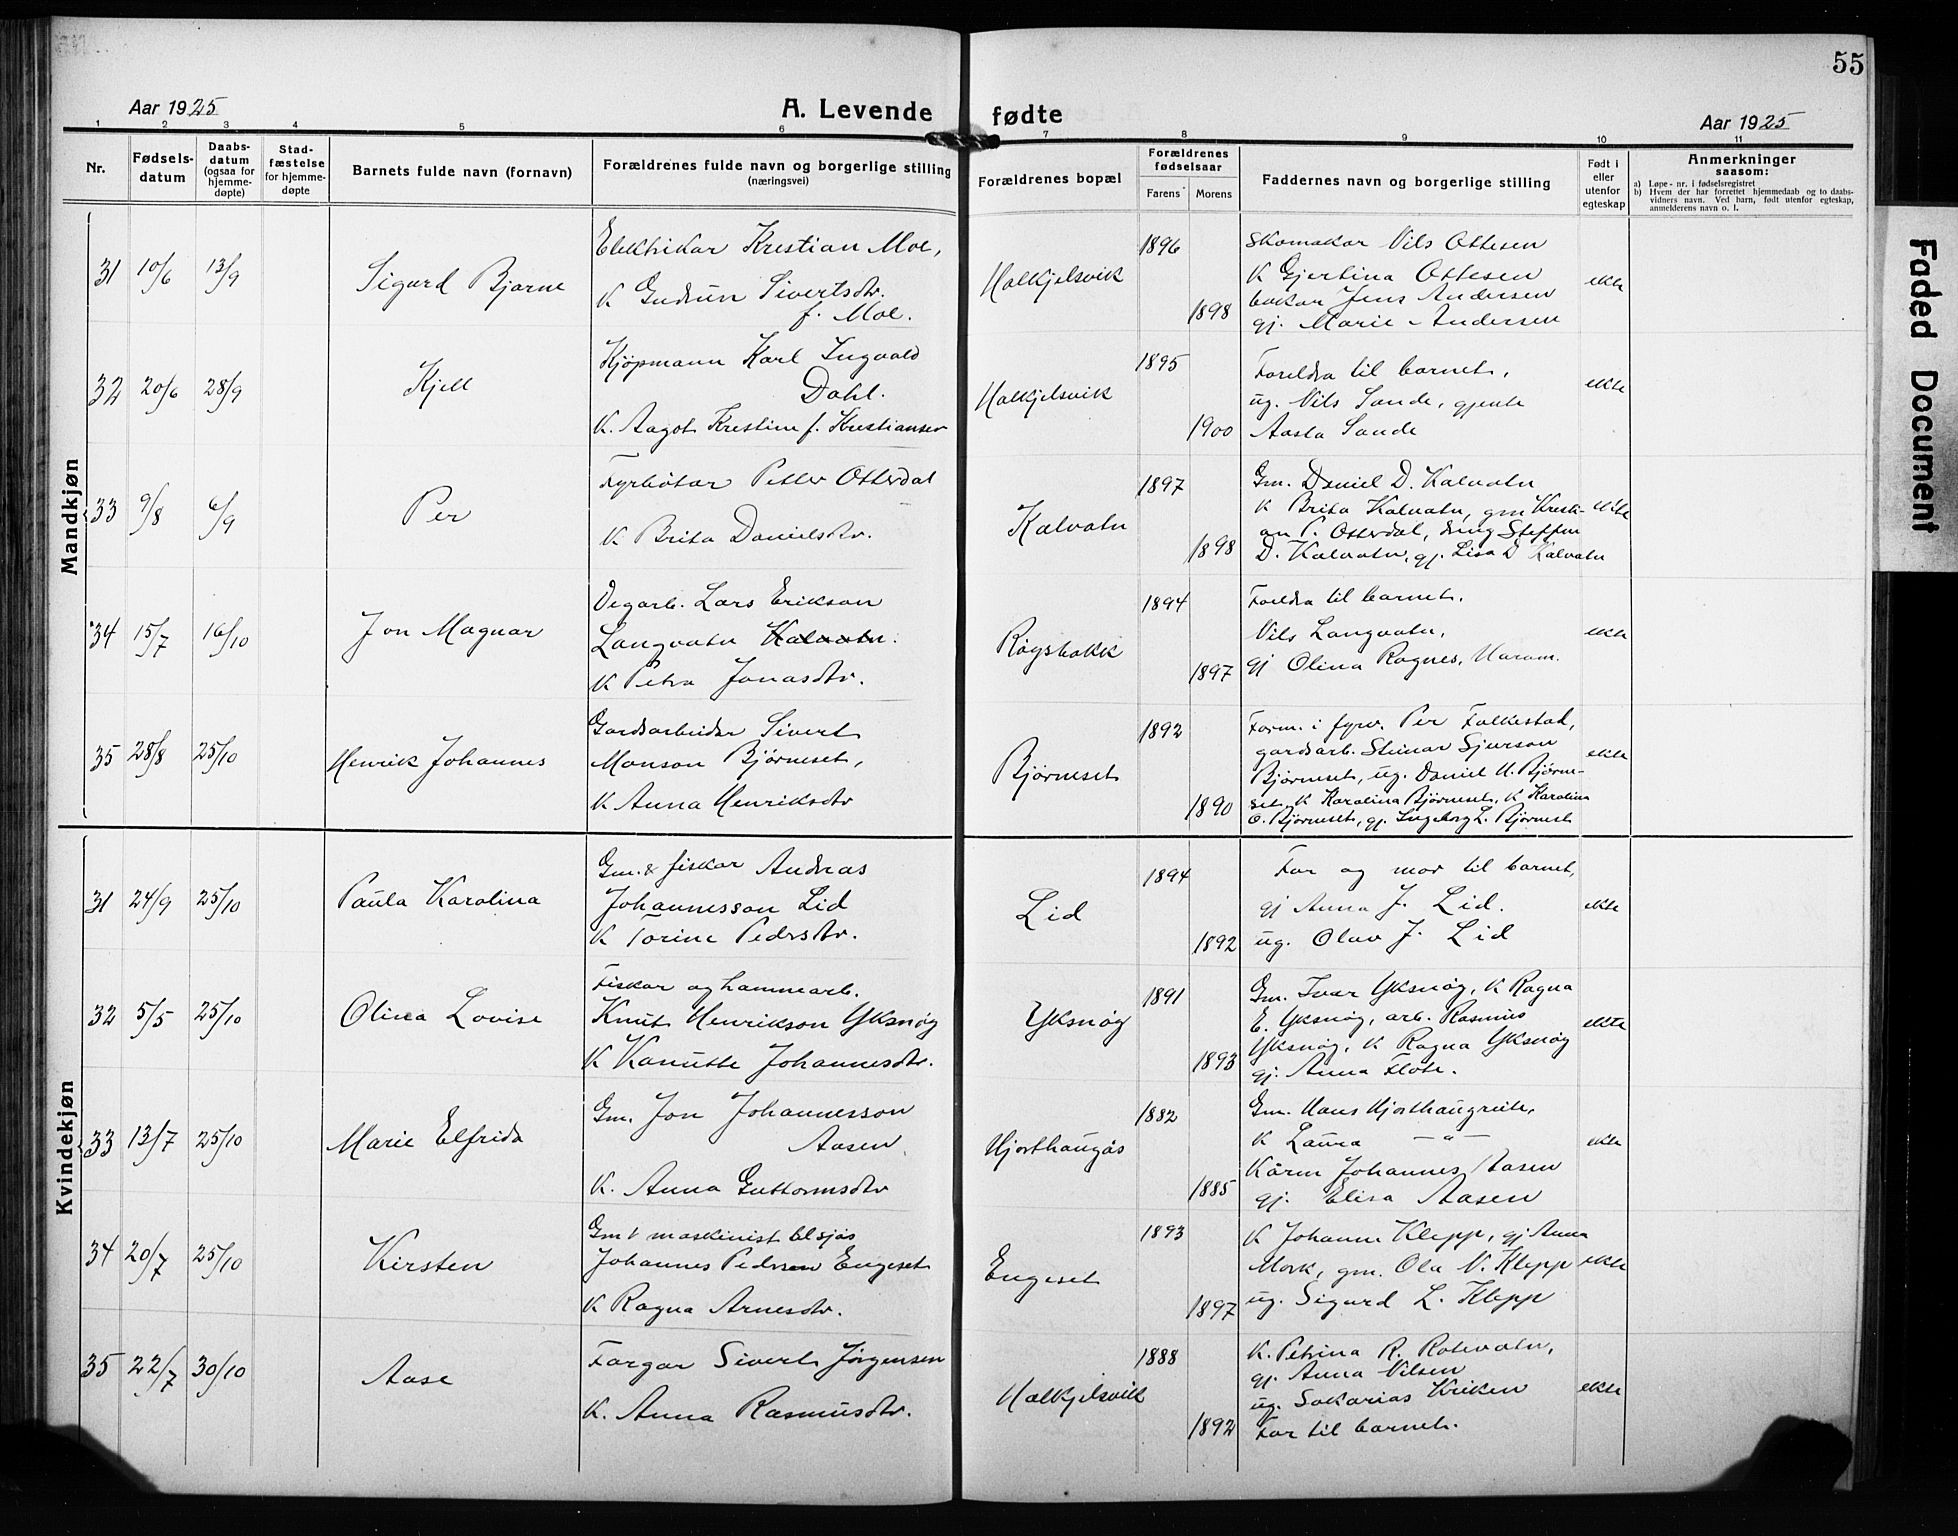 55
Aar 1925
A. Levende fødte
Aar 1925
1 2 3 4 5 6 7 8 9 10 11
Nr.
Fødsels-
datum
Daabs-
datum
(ogsaa for
hjemme-
døpte)
Stad-
fæstelse
for hjemme-
døpte
Barnets fulde navn (fornavn)
Forældrenes fulde navn og borgerlige stilling
(næringsvei)
Forældrenes bopæl
Forældrenes
fødselsaar
Farens
Morens
Faddernes navn og borgerlige stilling
Født i
eller
utenfor
egteskap
Anmerkninger
saasom:
a) Løpe-nr. i fødselsregistret
b) Hvem der har forrettet hjemmedaab og to daabs-
vidners navn. Ved barn, født utenfor egteskap,
anmelderens navn o. l.
Mandkjøn
31 10/6 13/9 Sigurd Bjarne
Elektrikar Kristian Moe,
K Gudrun Sivertsdtr.
f. Moe.
Halkjelsvik
1896
1898
Skomakar Nils Ottesen
K Gjertina Ottesen
bakar Jens Andersen
gj. Marie Andersen
ekte
32 20/6 28/9 Kjell
Kjøpmann Karl Ingvald
Dahl.
K. Aagot Kristine f. Kristiansen
Halkjelsvik
1895
1900
Foreldra til barnet,
ug. Nils Sande, gjente
Aasta Sande
ekte
33 9/8 6/9 Per
Fyrbøtar Petter Otterdal
K Brita Danielsdtr.
Kalvatn
1897
1898
Gm. Daniel D. Kalvatn
K Brita Kalvatn, gm Kristi-
an P. Otterdal, dreng Steffen
D. Kalvatn, gj. Lisa D Kalvatn
ekte
34 15/7 16/10 Jon Magnar
Vegarb. Lars Erikson
Langvatn Kalvatn.
K Petra Jonasdtr.
Røysbakk
1894
1897
Foreldra til barnet.
Nils Langvatn,
gj Olina Ragnes, Haram.
ekte
35 28/8 25/10 Henrik Johannes
Gardsarbeidar Sivert
Monson Bjørneset,
K Anna Henriksdtr
Bjørneset
1892
1890
Form. i fyrv. Per Folkestad,
gardsarb. Steinar Sjurson
Bjørneset, ug. Daniel H. Bjørne-
set, K Karolina Bjørneset, K Karolina
O. Bjørneset, gj. Ingeborg L. Bjørneset
ekte
Kvindekjøn
31 24/9 25/10 Paula Karolina
Gm. & fiskar Andreas
Johannesson Lid
K Torine Pedersdtr.
Lid
1894
1892
Far og mor til barnet,
gj Anna J. Lid.
ug. Olav J. Lid
ekte
32 5/5 25/10 Olina Lovise
Fiskar og hammararb.
Knut Henrikson Yksnøy
K Kanutte Johannesdtr.
Yksnøy
1891
1893
Gm. Ivar Yksnøy, K Ragna
E. Yksnøy, arb. Rasmus
Yksnøy, K Ragna Yksnøy
gj. Anna Fløte.
ekte
33 13/7 25/10 Marie Elfrida
Gm. Jon Johannesson
Aasen
K. Anna Guttormsdtr
Hjorthaugås
1882
1885
Gm. Hans Hjorthaugreite,
K Laura — " —
Kårm Johannes Aasen
gj. Elisa Aasen
ekte
34 20/7 25/10 Kirsten
Gm & maskinist tilsjøs
Johannes Pedersen Engeset
K Ragna Arnesdtr.
Engeset
1893
1897
K Johanne Klepp, gj Anna
Mork, gm. Ola N. Klepp
ug. Sigurd L. Klepp
ekte
35 22/7 30/10 Aase
Fargar Sivert Jørgensen
K. Anna Rasmusdtr.
Halkjelsvik
1888
1892
K. Petrina R. Rotevatn,
gj. Anna Nilsen
ug. Sakarias Kriken
Far til barnet.
ekte
Faded Document